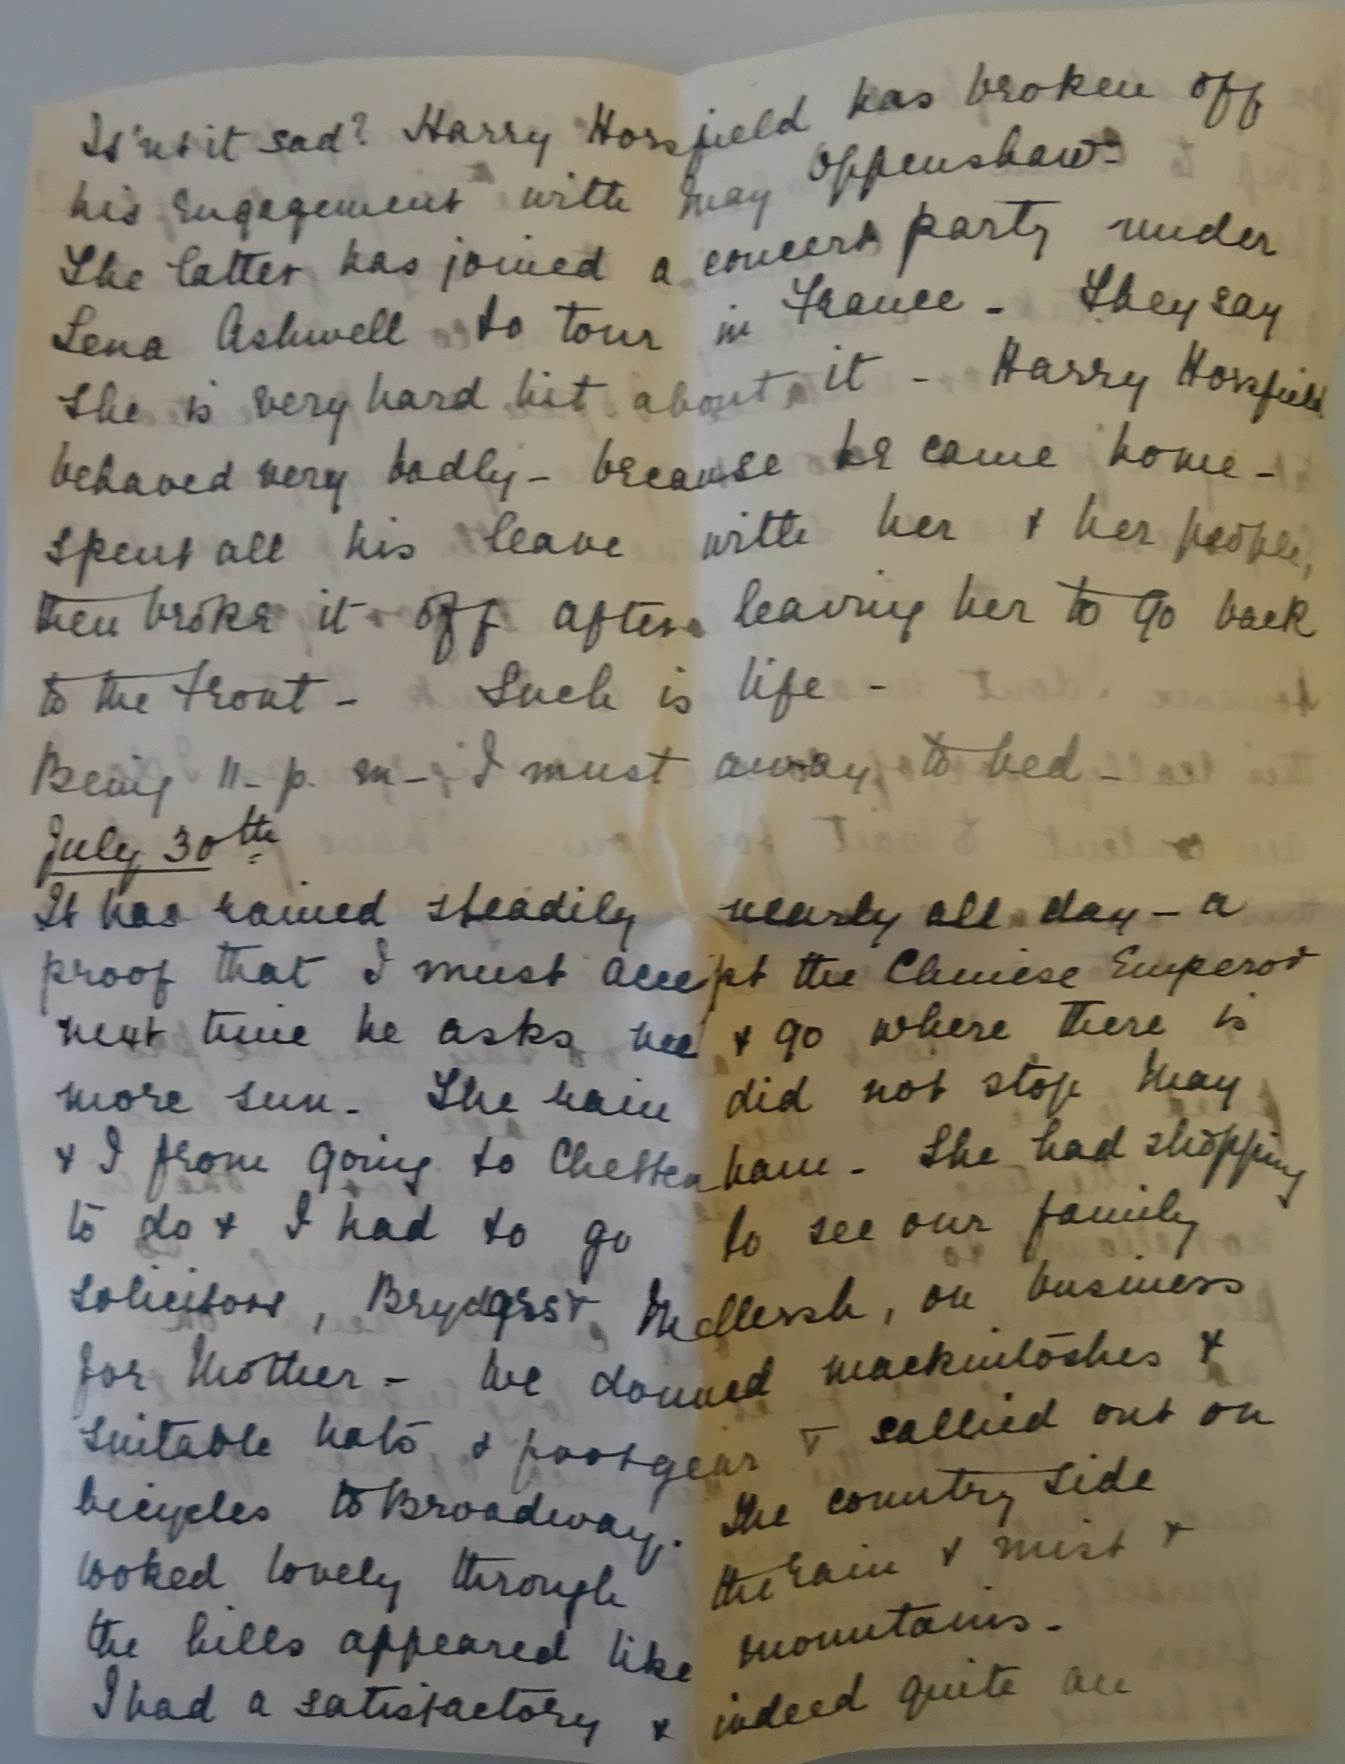 Is'nt it sad? Harry Horsfield has broken off
his Engagement with May Oppenshaw-
The latter has joined a concert party under
Lena Ashwell to tour in France - They say
she is very hard hit about it - Harry Horsfield
behaved very badly - because he came home -
spent all his leave with her & her people,
then broke it off after leaving her to go back
to the Front - Such is life -
Being 11- p. m - I must away to bed -
July 30th
It has rained steadily nearly all day - a
proof that I must accept the Chinese Emperor
next time he asks me & go where there is
more sun - The rain did not stop May
& I from going to Cheltenham - She had shopping
to do & I had to go to see our family
solicitors, Brydges & Mellersh, on business
for Mother - We donned mackintoshes &
suitable hats & footgear & sallied out on
bicycles to Broadway. The country side
looked lovely through the rain & mist &
the hills appeared like mountains -
I had a satisfactory & indeed quite an